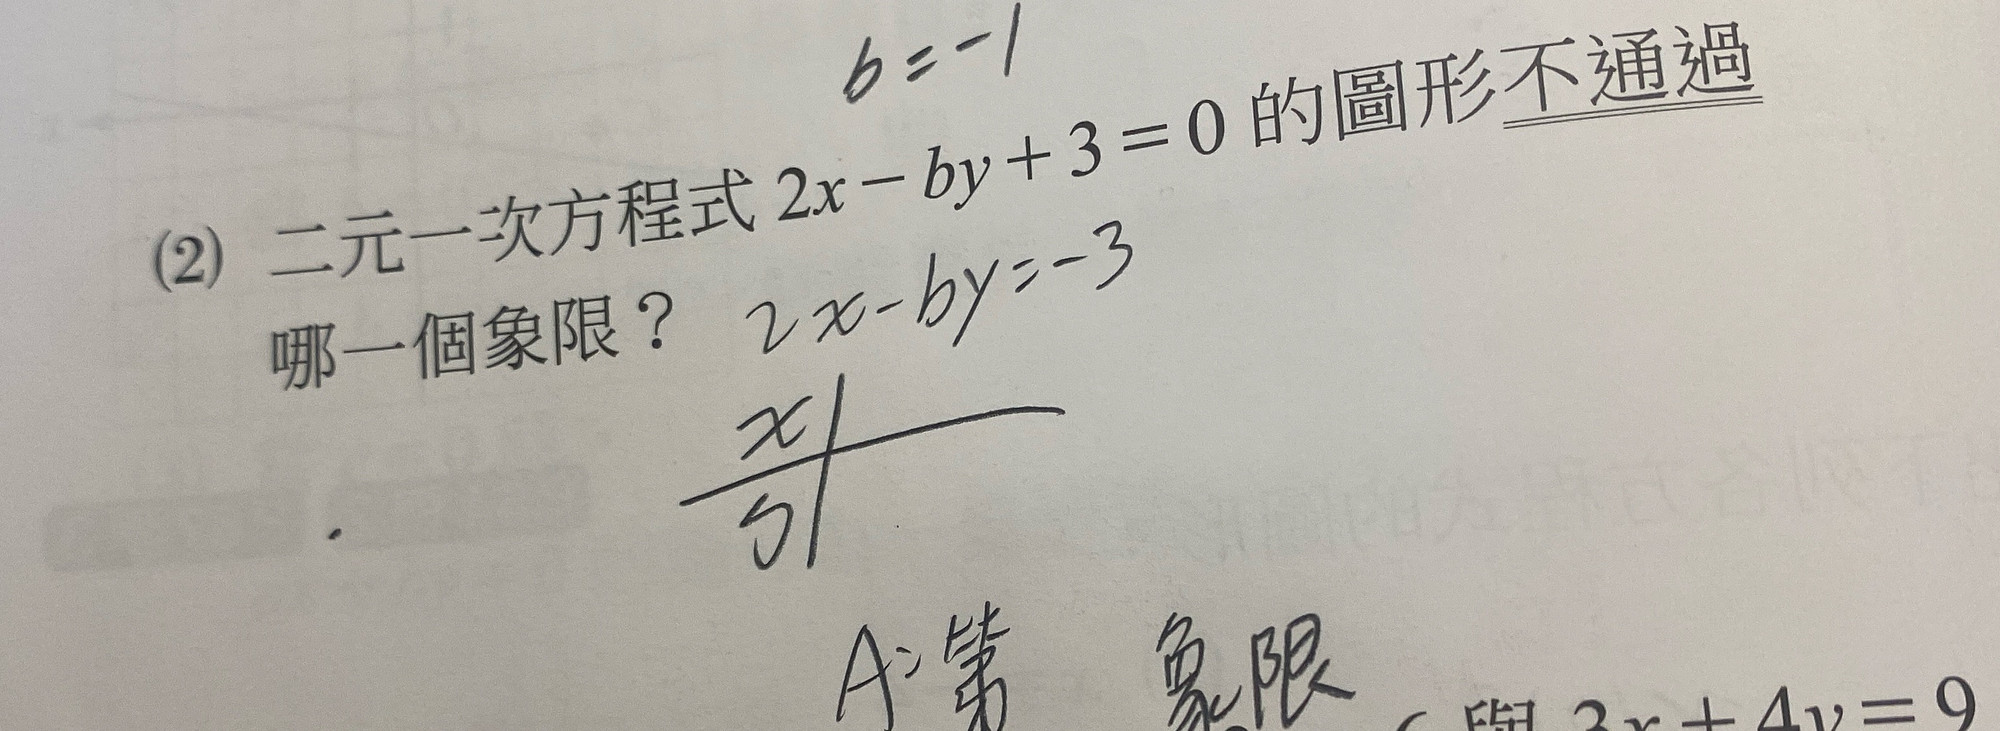 b=-1
(2) 二元一次方程式 2x-by+3=0 的圖形不通過
哪一個象限？ 2x-by=-3
x
y
A:第 象限
與 3x+4y=9